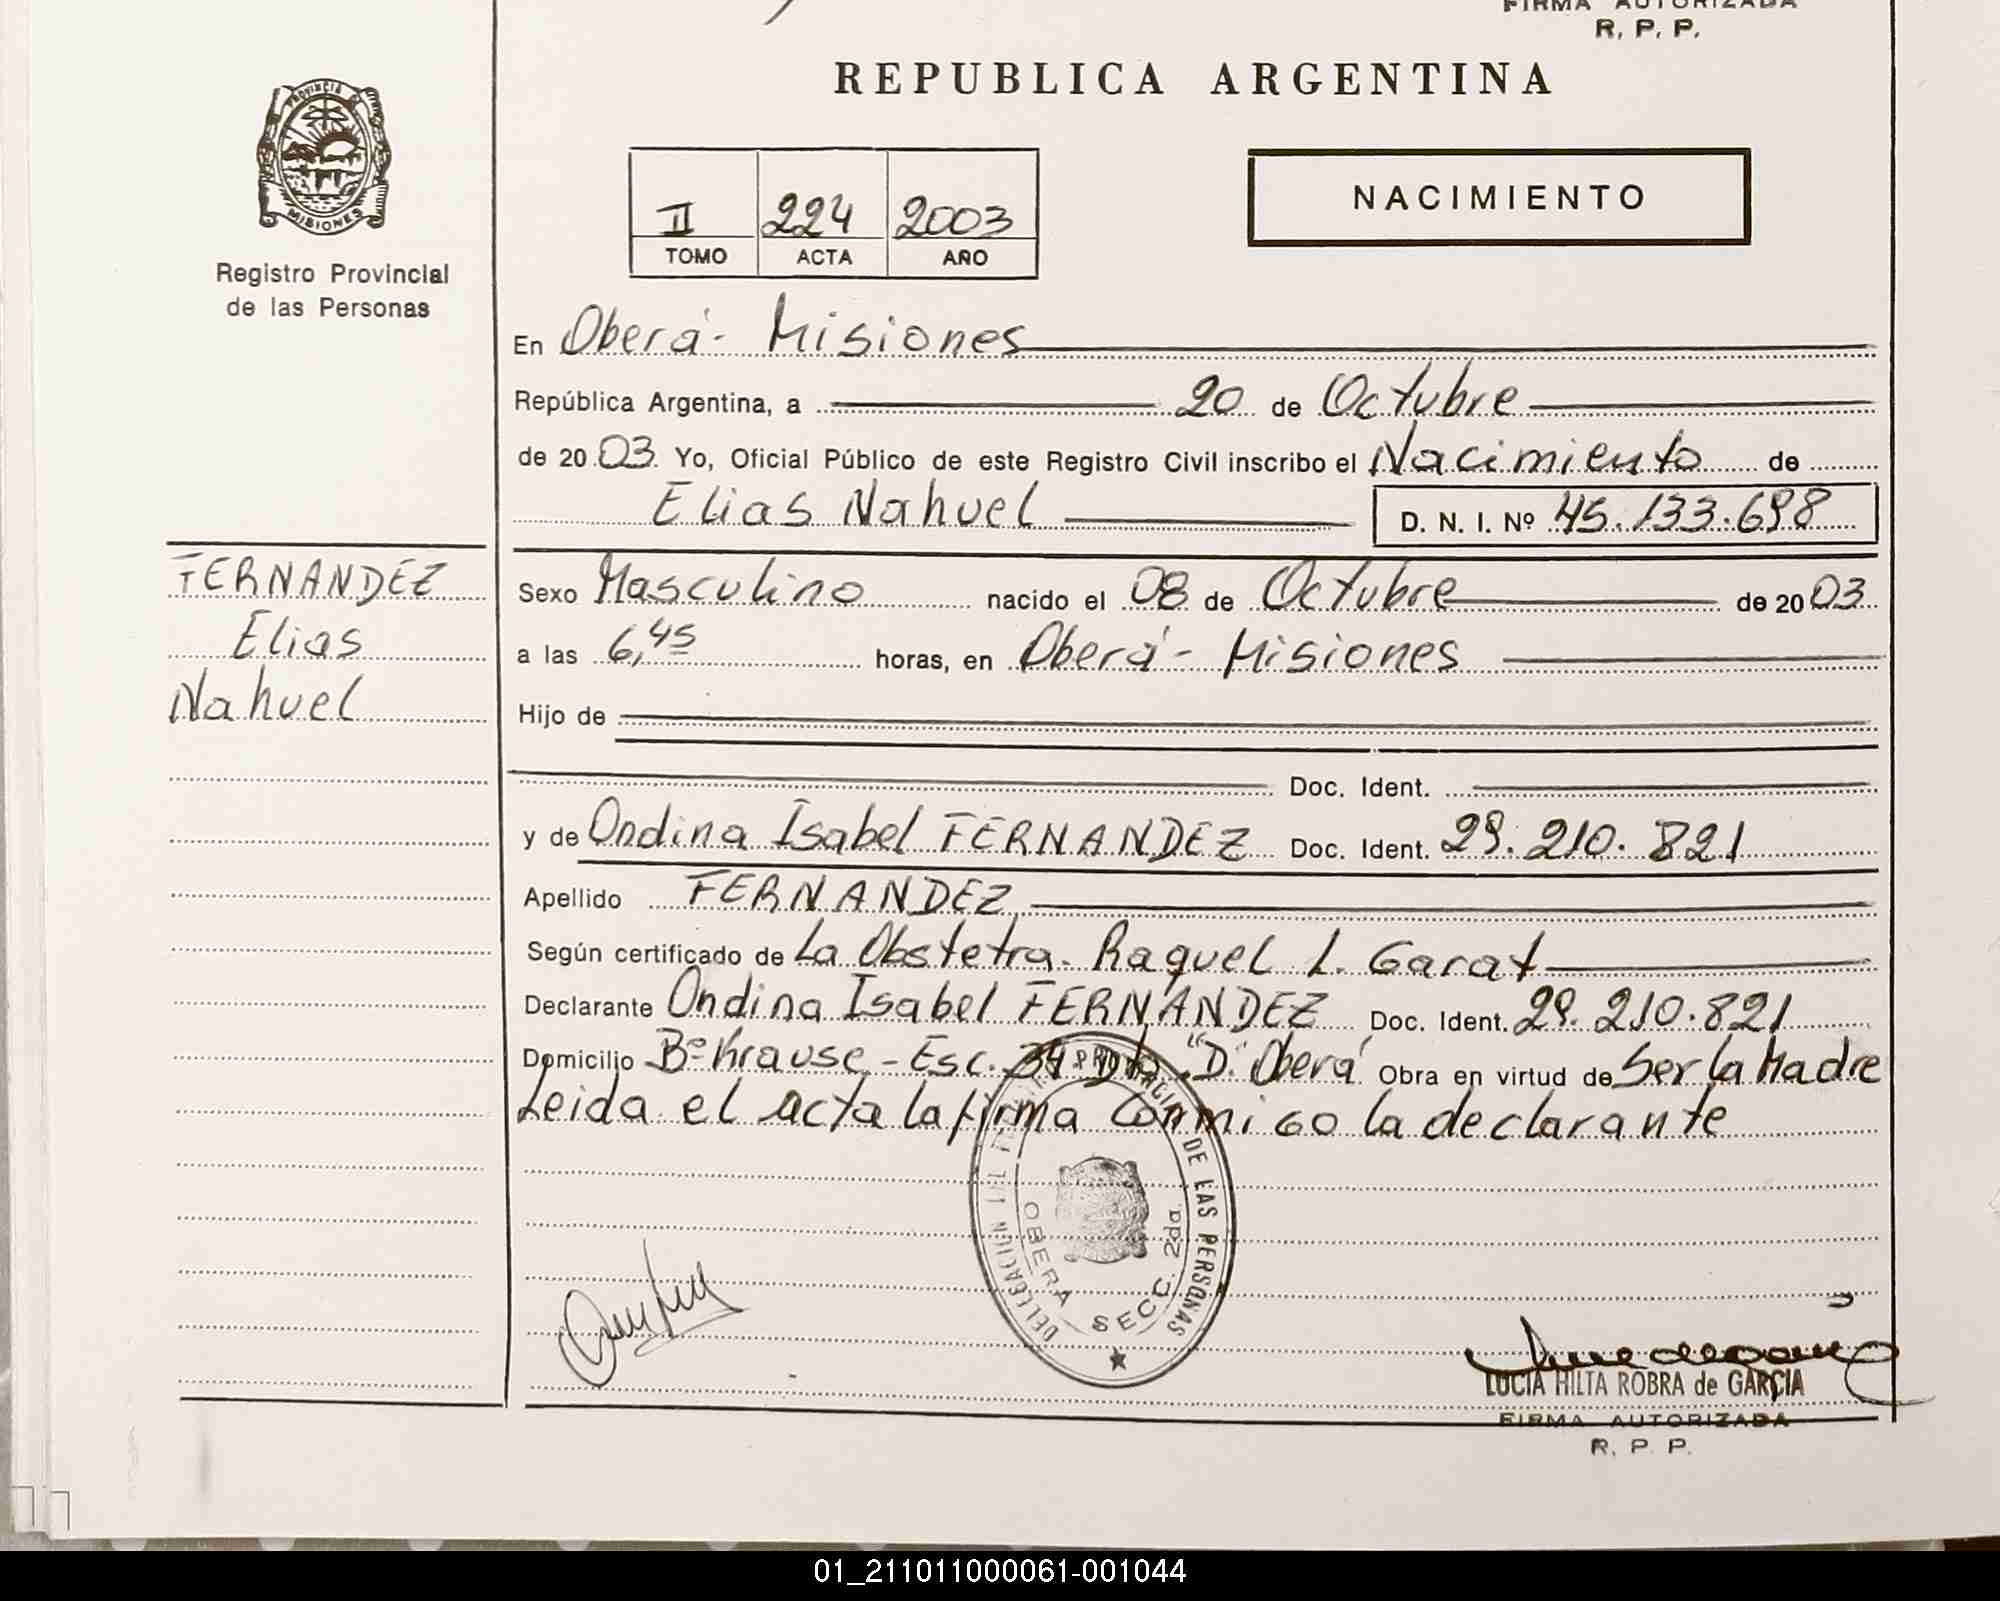 FIRMA AUTORIZADA
R. P. P.
REPUBLICA ARGENTINA
PROVINCIA DE
MISIONES
Registro Provincial
de las Personas
II 224 2003
TOMO ACTA AÑO
NACIMIENTO
En Oberá - Misiones
República Argentina, a 20 de Octubre
de 2003 Yo, Oficial Público de este Registro Civil inscribo el Nacimiento de
Elias Nahuel D. N. I. Nº 45.133.698
FERNANDEZ
Elias
Nahuel
Sexo Masculino nacido el 08 de Octubre de 2003
a las 6,45 horas, en Oberá - Misiones
Hijo de
Doc. Ident.
y de Ondina Isabel FERNANDEZ Doc. Ident. 29.210.821
Apellido FERNANDEZ
Según certificado de La Obstetra. Raquel L. Garat
Declarante Ondina Isabel FERNANDEZ Doc. Ident. 29.210.821
Domicilio Bº Krause - Esc. 34 Dto "D" Oberá Obra en virtud de Ser la Madre
Leida el acta la firma conmigo la declarante
DE LAS PERSONAS
OBERA SECC. 2da.
LUCIA HILTA ROBRA de GARCIA
FIRMA AUTORIZADA
R. P. P.
01_211011000061-001044